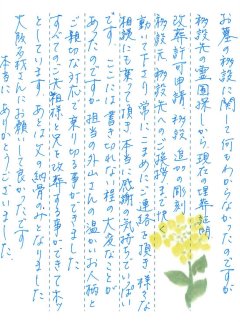 お墓の移設に関して何もわからなかったのですが
移設先の霊園探しから現在の埋葬証明
改葬許可申請 移設 追加の彫刻
移設元 移設先へのご挨拶まで快く
動いて下さり 常にこまめにご連絡を頂き 様々な
相談にも乗って頂き 本当に感謝の気持ちでいっぱい
です ここには書き切れない程の大変なことが
あったのですが 担当の外山さんの温かいお人柄と
ご親切な対応で乗り切る事ができました
すべてのご先祖様と兄を改葬する事ができてホッ
としています あとは父の納骨のみとなりました
大阪石材さんにお願いして良かったです
本当に ありがとうございました